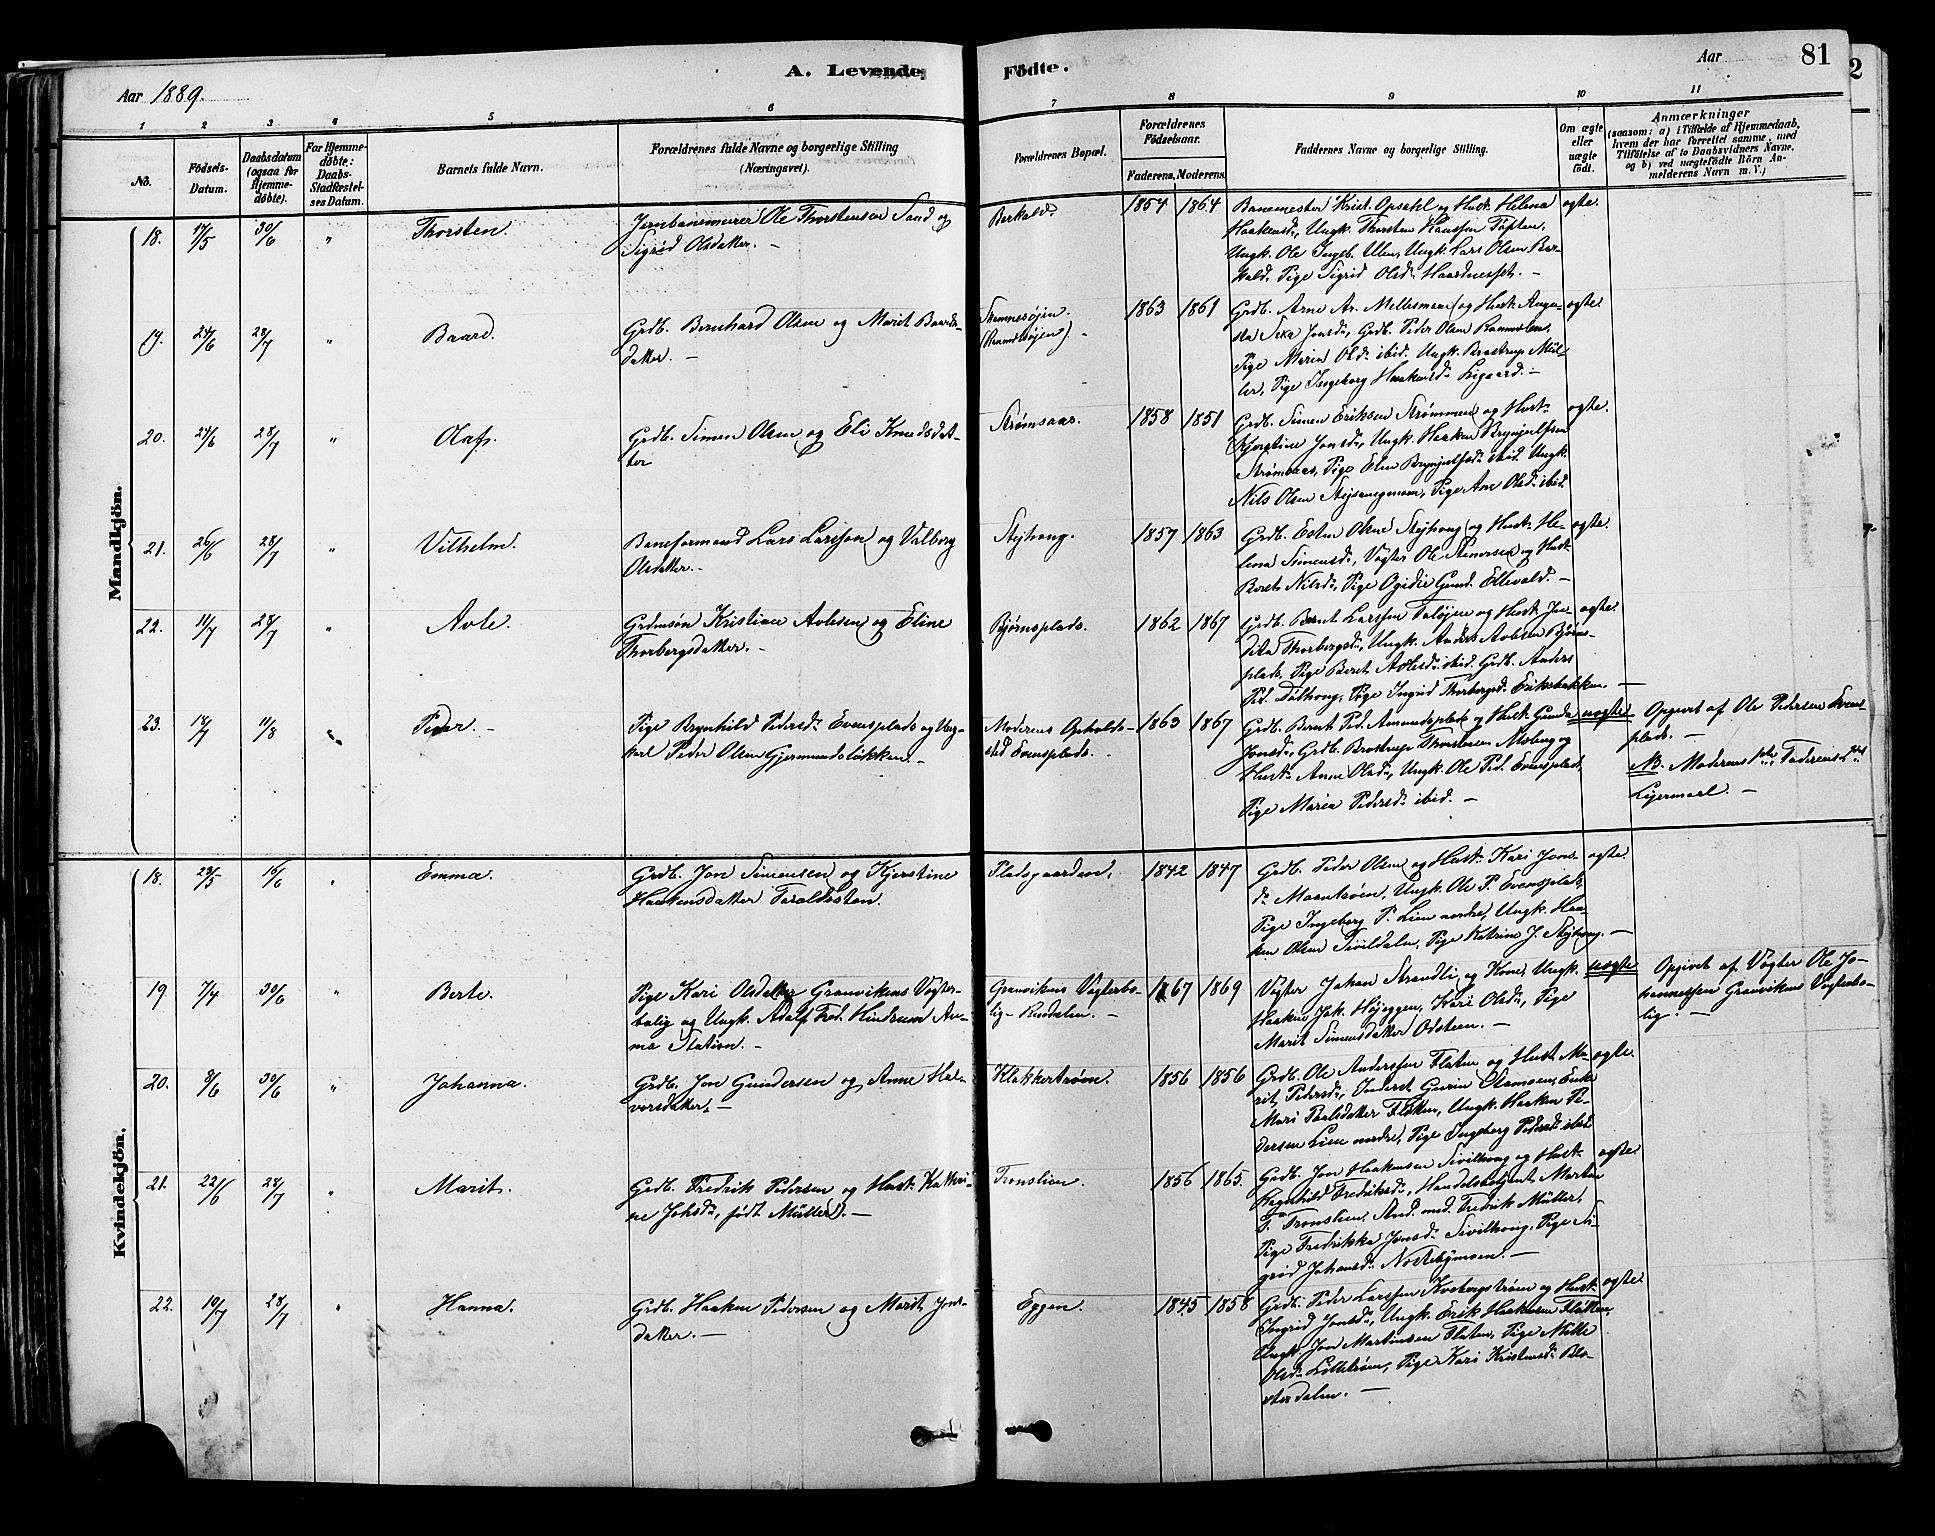 A. Levende Fødte.
Aar 1889.
Aar
81
2
1 2 3 4 5 6 7 8 9 10 11
No.
Fødsels-
Datum.
Daabsdatum
(ogsaa for
Hjemme-
døbte).
For Hjemme-
døbte:
Daabs-
Stadfæstel-
ses Datum.
Barnets fulde Navn.
Forældrenes fulde Navne og borgerlige Stilling
(Næringsvei).
Forældrenes Bopæl.
Forældrenes
Fødselsaar.
Faderens. Moderens.
Faddernes Navne og borgerlige Stilling.
Om ægte
eller
uægte
født.
Anmærkninger
(saasom: a) i Tilfælde af Hjemmedaab,
hvem der har forrettet samme, med
Tilføielse af to Daabsvidners Navne,
og b) ved uægtefødte Børn An-
melderens Navn m. V.)
Mandkjøn.
18. 17/5 30/6 " Thorsten.
Jernbanemurer Ole Thorstensen Sand og
Sigrid Olsdatter. —
Berkald.
1854 1864
Banemester Krist. Opsahl og Hust. Helena
Haakensd., Ungk. Thorsten Hanssen Tøften,
Ungk. Ole Ingeb. Ulen, Ungk. Lars Olsen Ber-
kald, Pige Sigrid Olsd. Haardnesset. —
ægte.
19. 24/6 28/7 " Baard.
Grdb. Bernhard Olsen og Marit Baards-
datter. —
1863 1861
Grdb. Arne Ar. Mellesmoe og Hust. Augu-
sta Sexe Jonsd., Grdb. Peder Olsen Rammolen,
Pige Maria Olsd. ibid. Ungk. Brostrup Mül-
ler, Pige Ingeborg Haakensd. Ligaard. —
ægte.
20. 24/6 28/7 " Olaf.
Grdb. Simen Olsen og Eli Knudsdat-
ter
Strømsaas.
1858 1851
Grdb. Simen Eriksen Strømmen og Hust.
Kjerstine Jonsd., Ungk. Haaken Brynjulfsen
Strømsaas, Pige Elen Brynjulfsd. ibid. Ungk.
Nils Olsen Stejsmegmoen, Pige Ane Olsd. ibid.
ægte.
21. 26/6 28/7 " Vilhelm.
Baneformand Lars Larssen og Valborg
Olsdatter. —
Stejhoug.
1857 1863
Grdb. Esten Olsen Stejhoug og Hust. He-
lena Simensd., Vogter Ole Stenersen og Hust.
Beret Nilsd., Pige Ogidie Gund. Ellevold. —
ægte.
22. 11/7 28/7 " Avle.
Grdmsøn Kristian Avlesen og Eline
Thorbergsdatter. —
Bjørnsplads.
1862 1867
Grdb. Bernt Larssen Taløjen og Hust. Jon-
detta Thorbergsd., Ungk. Anders Avlesen Bjørns-
plads, Pige Beret Avlesd. ibid. Grdb. Anders
Ped. Dølhoug, Pige Ingrid Thorbergsd. Eriksbakken. —
ægte.
23. 18/7 11/8 " Peder. —
Pige Brynhild Pedersd. Evensplads og Ung-
karl Peder Olsen Gjermundsløkken. —
Moderens Opholds-
sted Evensplads. —
1863 1867
Grdb. Bernt Ped. Amundsplads og Hust. Gunda
Jonsd., Grdb. Brostrup Thorstensen Moberg og
Hust. Anne Olsd., Ungk. Ole Ped. Evensplads,
Pige Maria Pedersd. ibid. —
uægte
Opgivet af Ole Pedersen Evens-
plads. —
NB. Moderens 1ste, Faderens 2det
Lejermaal. —
Kvindekjøn.
18. 23/5 16/6 " Emma.
Grdb. Jon Simensen og Kjerstine
Haakensdatter Taraldssten.
Pladsgaarden.
1842 1847
Grdb. Peder Olsen og Hust. Kari Jons-
d. Maantrøen, Ungk. Ole P. Evensplads,
Pige Ingeborg P. Lien nordre, Ungk. Haa-
ken Olsen Sivildalen, Pige Katrine J. Stejhoug. —
ægte.
19 7/4 30/6 " Berte.
Pige Kari Olsdatter Granvikens Vogter-
bolig og Ungk. Adolf Fred. Hindrum An-
ma Station. —
Granvikens Vogterbo-
lig —
1867 1869
Vogter Johan Strandli og Kone, Ungk.
Haaken Joh. Højeggen, Kari Olsd., Pige
Marit Simensdatter Odsteen. —
uægte
Opgivet af Vogter Ole Jo-
hannessen Granvikens Vogterbo-
lig. —
20. 8/6 30/6 " Johanna.
Grdb. Jon Gundersen og Anne Hal-
vorsdatter. —
Klokkertrøen.
1856 1856
Grdb. Ole Anderssen Flaten og Hust. Ma-
rit Pedersd., Inderst Gurin Olamoen, Enke
Mari Paalsdatter Fløtten, Ungk. Haaken Pe-
dersen Lien nordre, Pige Ingeborg Pedersd. ibid.
ægte.
21. 22/6 28/7 " Marit.
Grdb. Fredrik Pedersen og Hust. Kathri-
ne Johsd., født Müller. —
Tronslien.
1856 1865.
Grdb. Jon Haakensen Sivilhoug og Hust.
Ragnhild Fredriksd., Handelsbetjent Morten
F. Tronslien, Stud. med. Fredrik Müller,
Pige Fredrikka Jonsd. Sivilhoug, Pige Si-
grid Johansd. Nostebymoen. —
ægte.
22. 19/7 28/7 " Hanna.
Grdb. Haaken Pedersen og Marit Jons-
datter. —
Eggen.
1845 1858
Grdb. Peder Larssen Kvebergstrøen og Hust.
Ingrid Jonsd., Ungk. Erik Haakensen Fløtten,
Ungk. Jon Martinsen Flaten, Pige Mille
Olsd. Lilletrøen, Pige Kari Kristensd. Blo-
sterdalen. —
ægte.